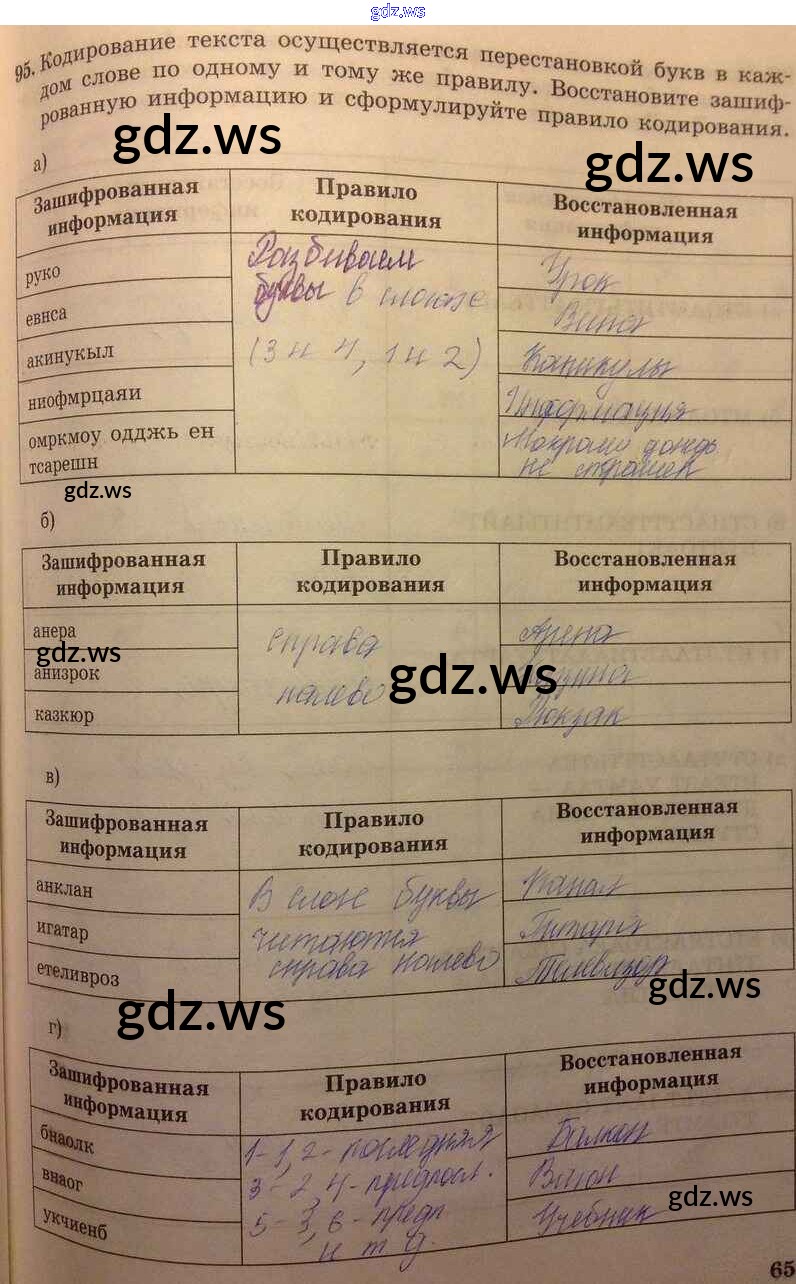 gdz.ws
95. Кодирование текста осуществляется перестановкой букв в каж-
дом слове по одному и тому же правилу. Восстановите зашиф-
рованную информацию и сформулируйте правило кодирования.
gdz.ws
gdz.ws
а)
Зашифрованная информация
Правило кодирования
Восстановленная информация
руко
евнса
акинукыл
ниофмрцаяи
омркмоу одджь ен
тсарешн
Разбиваем
буквы в слогах
(3 и 4, 1 и 2)
Урок
Каникулы
Информация
Мокрому дождь
не страшен
gdz.ws
б)
Зашифрованная информация
Правило кодирования
Восстановленная информация
анера
анизрок
казкюр
справа
налево
Арена
Рюкзак
gdz.ws
gdz.ws
в)
Зашифрованная информация
Правило кодирования
Восстановленная информация
анклан
игатар
етеливроз
В слоге буквы
читаются
справа налево
Канал
Гитара
Телевизор
gdz.ws
gdz.ws
г)
Зашифрованная информация
Правило кодирования
Восстановленная информация
бнаолк
внаог
укчиенб
1-1, 2- последняя
3-2, 4- предпосл.
5-3, 6- предп
и т д.
Балкон
Вагон
Учебник
gdz.ws
65